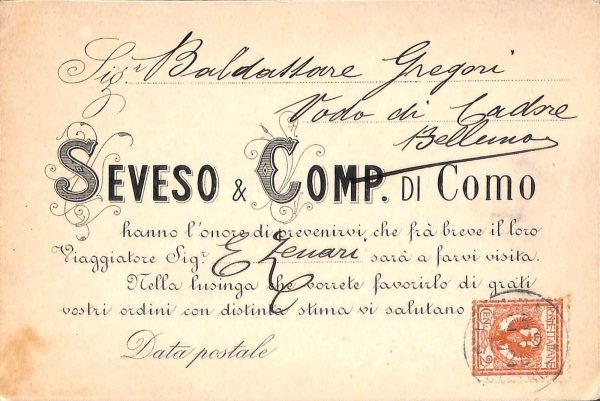 Sigr Baldassare Gregori
Vodo di Cadore
Belluno
SEVESO & COMP. DI COMO
hanno l'onore di prevenirvi che frà breve il loro
Viaggiatore Sigr E Zenari sarà a farvi visita.
Nella lusinga che vorrete favorirlo di grati
vostri ordini con distinta stima vi salutano
Data postale